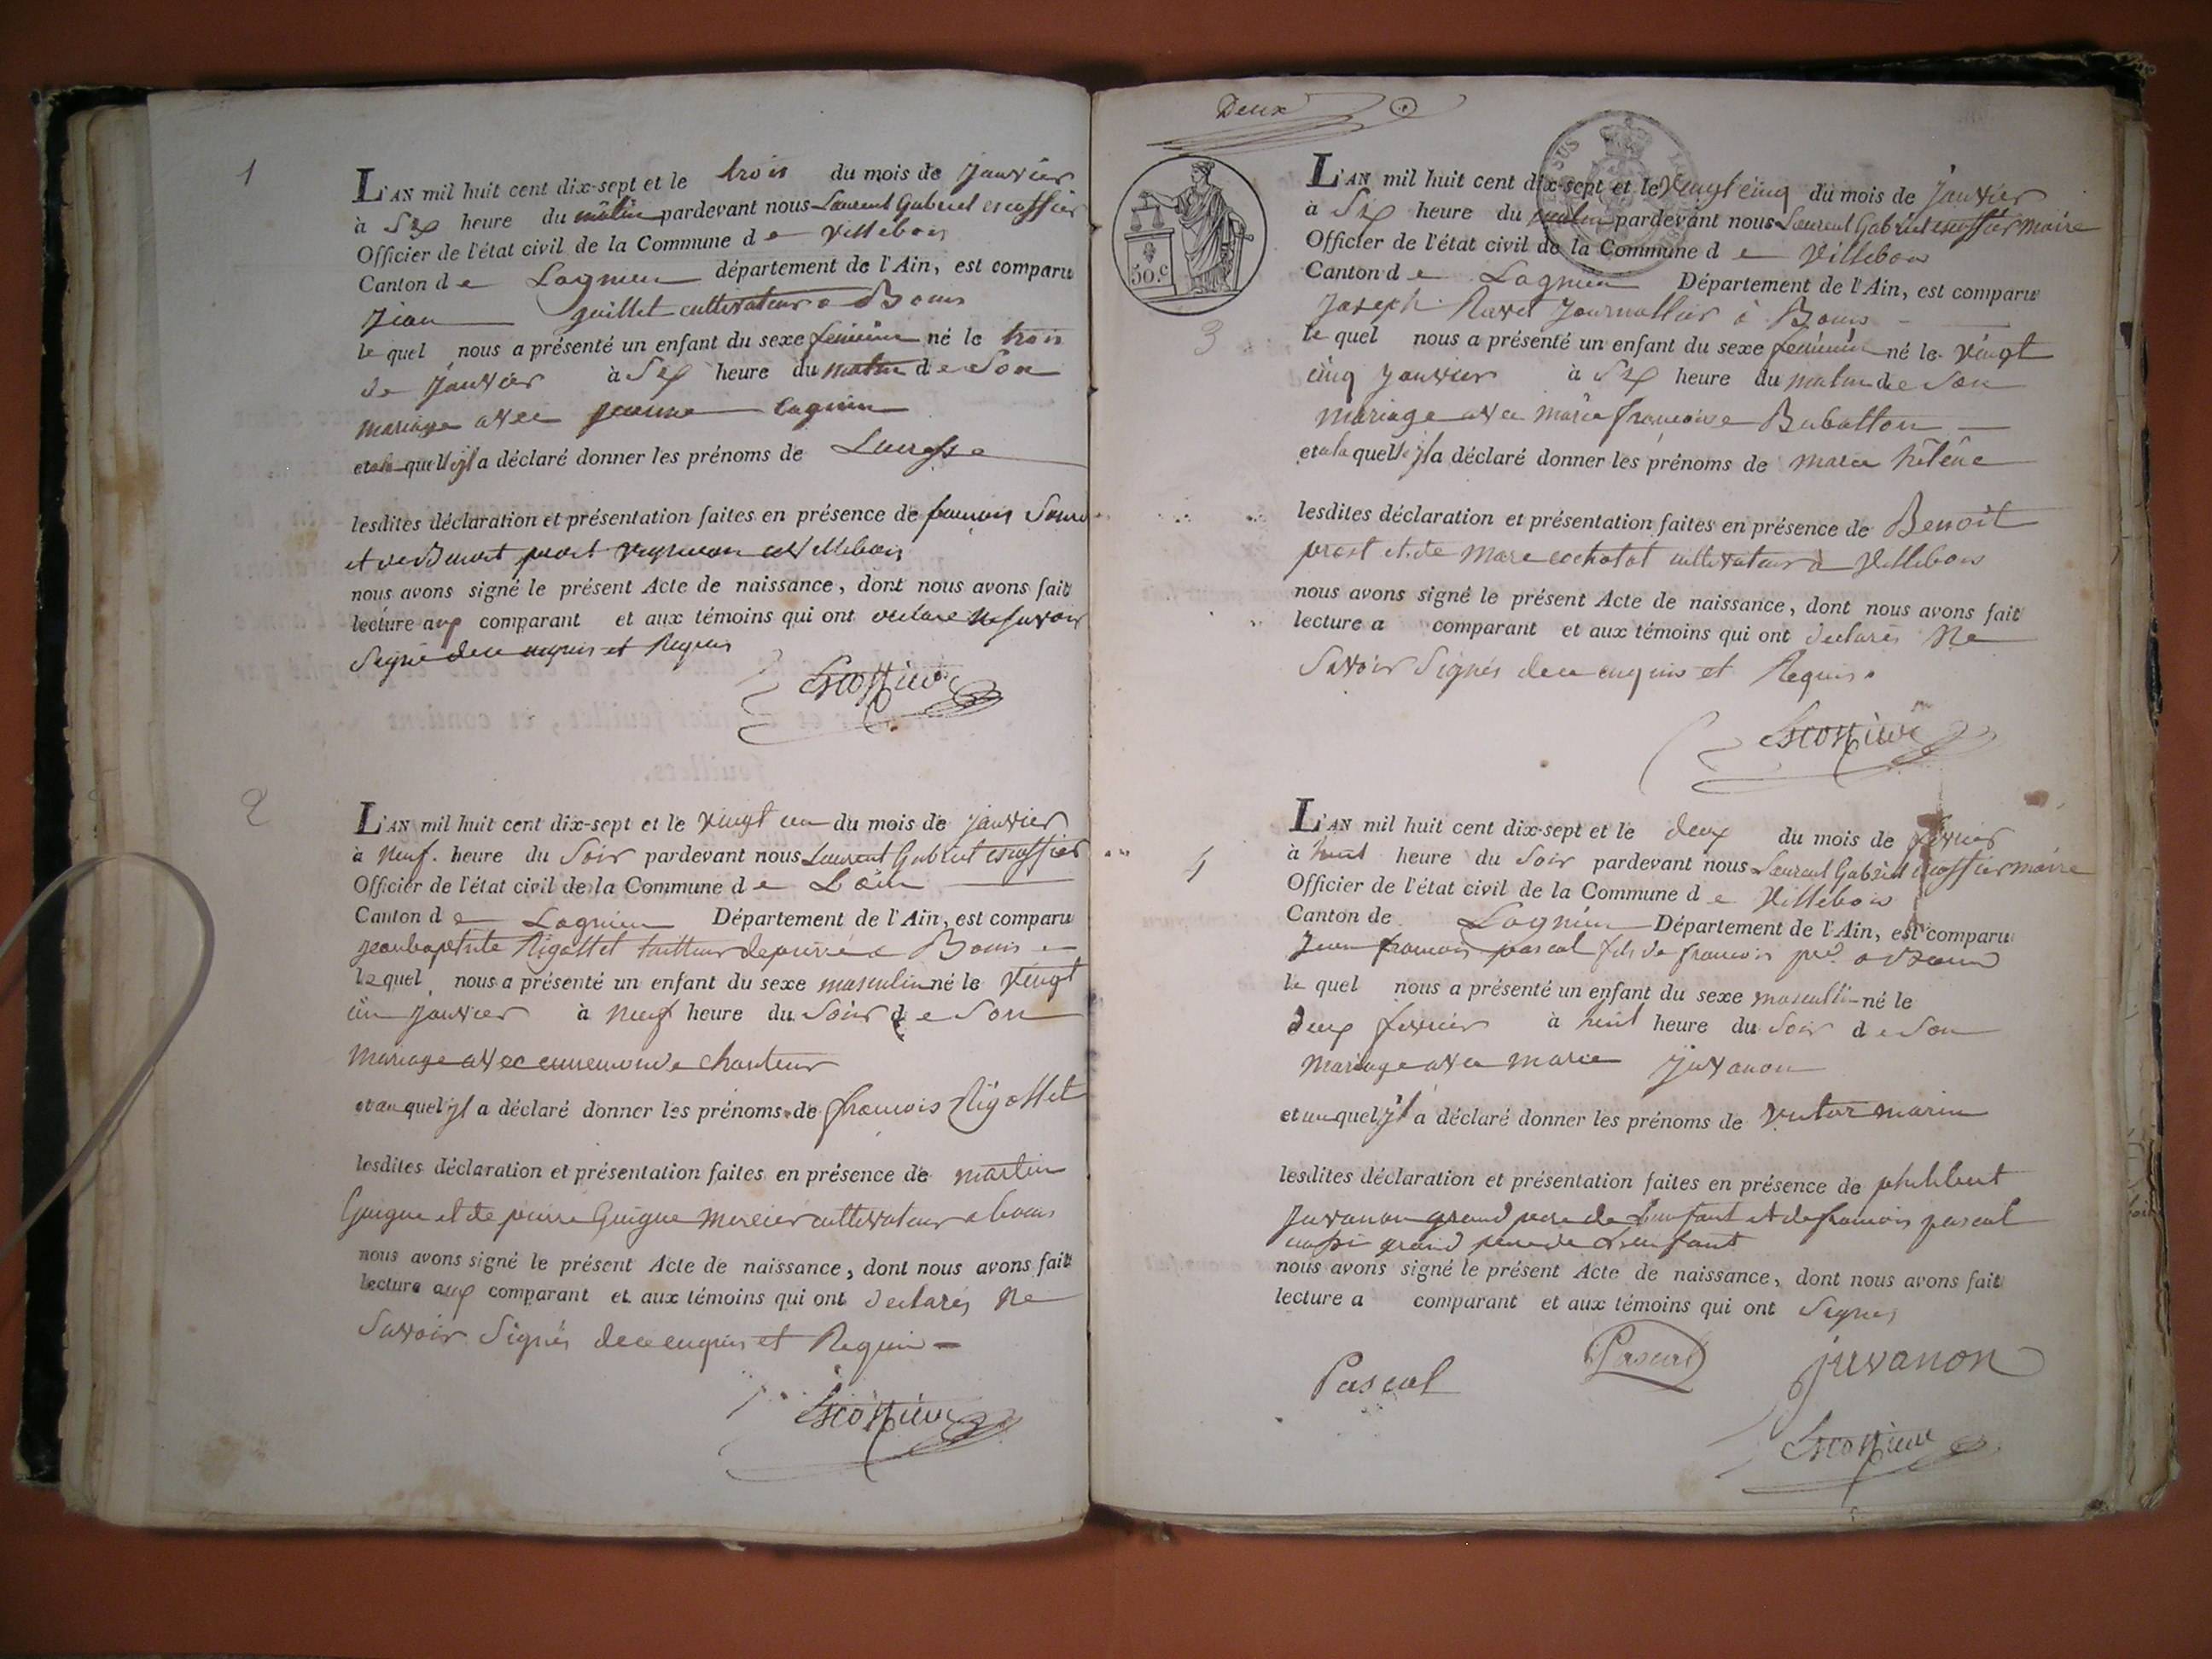 1
L'AN mil huit cent dix-sept et le trois du mois de janvier
à Six heure du matin pardevant nous Laurent Gabriel escoffier
Officier de l'état civil de la Commune d e villebois
Canton d e Lagnieu département de l'Ain, est comparu
jean guillet cultivateur a Bouis
le quel nous a présenté un enfant du sexe feminin né le trois
de janvier à Six heure du matin d e Son
mariage avec jeanne
et a la quelle il a déclaré donner les prénoms de
lesdites déclaration et présentation faites en présence de francois
et de Benoit prost vigneron a Villebois
nous avons signé le présent Acte de naissance, dont nous avons fait
lecture aux comparant et aux témoins qui ont declare ne savoir
Signé de ce enquis et Requis
Escoffier
2
L'AN mil huit cent dix-sept et le vingt un du mois de janvier
à neuf heure du Soir pardevant nous Laurent Gabriel escoffier
Officier de l'état civil de la Commune d e
Canton d e Lagnieu Département de l'Ain, est comparu
jean baptiste Rigollet tailleur de pierre a Bouis
le quel nous a présenté un enfant du sexe masculin né le vingt
un janvier à neuf heure du Soir d e Son
mariage avec ennemonde chanteur
et au quel yl a déclaré donner les prénoms de francois Rigollet
lesdites déclaration et présentation faites en présence de martin
Guigue et de pierre Guigue mercier cultivateur a bouis
nous avons signé le présent Acte de naissance, dont nous avons fait
lecture aux comparant et aux témoins qui ont declarés ne
Savoir Signés de ce enquis et Requis
Escoffier
Deux
50 c.
3
L'AN mil huit cent dix-sept et le vingt cinq du mois de janvier
à Six heure du matin pardevant nous Laurent Gabriel escoffier maire
Officier de l'état civil de la Commune d e Villebois
Canton d e Lagnieu Département de l'Ain, est comparu
joseph Ravet journallier à Bouis
le quel nous a présenté un enfant du sexe feminin né le vingt
cinq janvier à Six heure du matin d e Son
mariage avec marie francoise Babolton
et a la quelle yl a déclaré donner les prénoms de marie hélène
lesdites déclaration et présentation faites en présence de Benoit
prost et de marc cochotot cultivateur à Villebois
nous avons signé le présent Acte de naissance, dont nous avons fait
lecture a comparant et aux témoins qui ont declarés Ne
Savoir Signés de ce enquis et Requis.
Escoffier
4
L'AN mil huit cent dix-sept et le deux du mois de fevrier
à huit heure du Soir pardevant nous Laurent Gabriel escoffier maire
Officier de l'état civil de la Commune d e Villebois
Canton de Lagnieu Département de l'Ain, est comparu
jean francois pascal fils de francois
le quel nous a présenté un enfant du sexe masculin né le
deux fevrier à huit heure du Soir d e Son
mariage avec marie juvanon
et au quel yl a déclaré donner les prénoms de victor marin
lesdites déclaration et présentation faites en présence de philibert
juvanon grand pere de Lenfant et de francois pascal
aussi grand pere de Lenfant
nous avons signé le présent Acte de naissance, dont nous avons fait
lecture a comparant et aux témoins qui ont Signes
Pascal Pascal juvanon
Escoffier